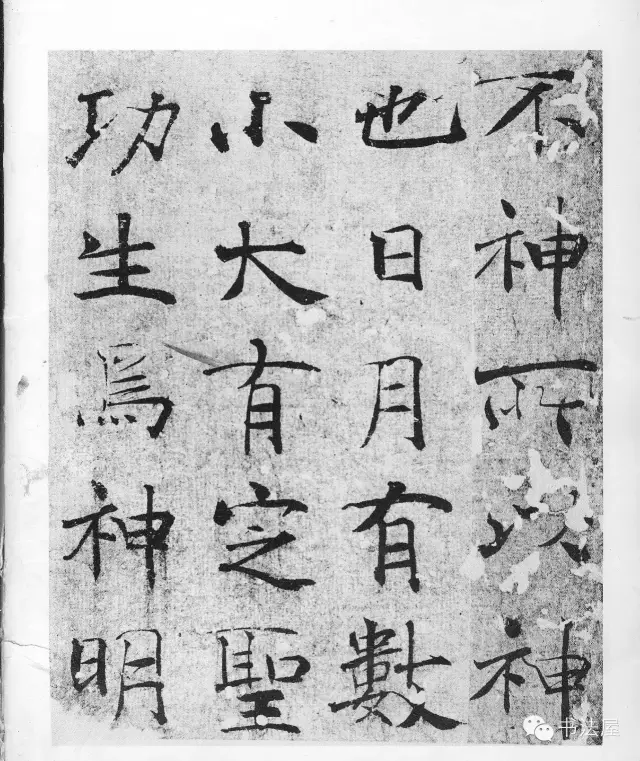 不神所以神
也日月有數
小大有定聖
功生爲神明
书法屋